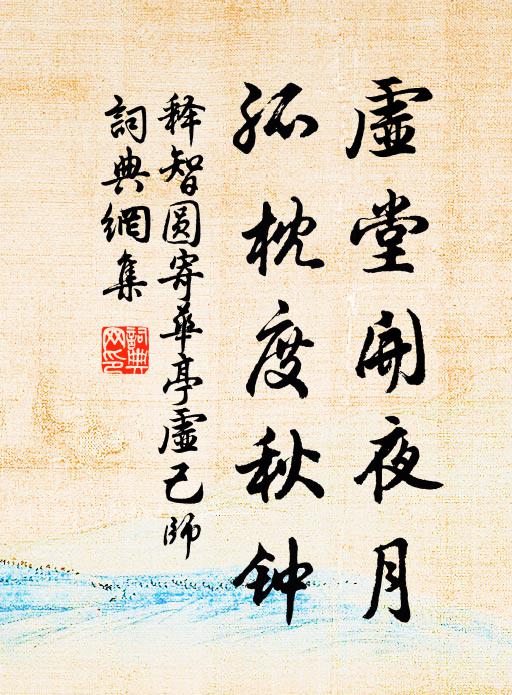 虛堂開夜月
孤枕度秋钟
释智圆寄華亭虛己師
詞典網集
詞典網印